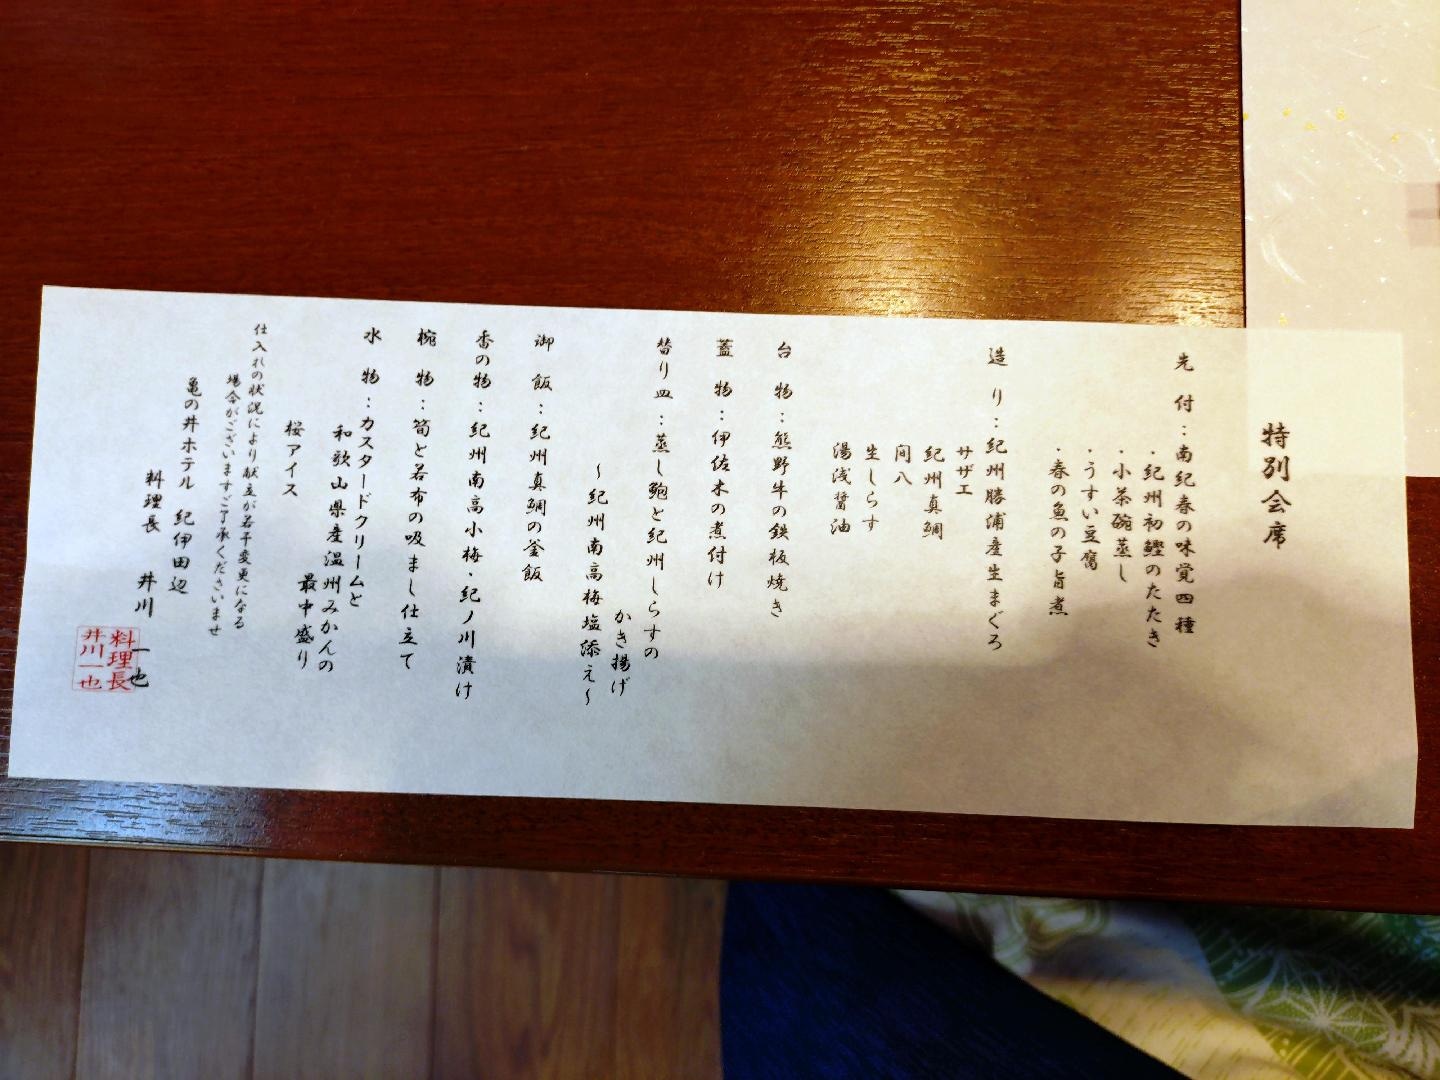 特別会席
先 付：南紀春の味覚四種
・紀州初鰹のたたき
・小茶碗蒸し
・うすい豆腐
・春の魚の子旨煮
造 り：紀州勝浦産生まぐろ
サザエ
紀州真鯛
間八
生しらす
湯浅醤油
台 物：熊野牛の鉄板焼き
蓋 物：伊佐木の煮付け
替り皿：蒸し鮑と紀州しらすの
かき揚げ
～紀州南高梅塩添え～
御 飯：紀州真鯛の釜飯
香の物：紀州南高小梅・紀ノ川漬け
椀 物：筍と若布の吸まし仕立て
水 物：カスタードクリームと
和歌山県産温州みかんの
最中盛り
桜アイス
仕入れの状況により献立が若干変更になる
場合がございますご了承くださいませ
亀の井ホテル 紀伊田辺
料理長 井川 一也
料理長
井川一也